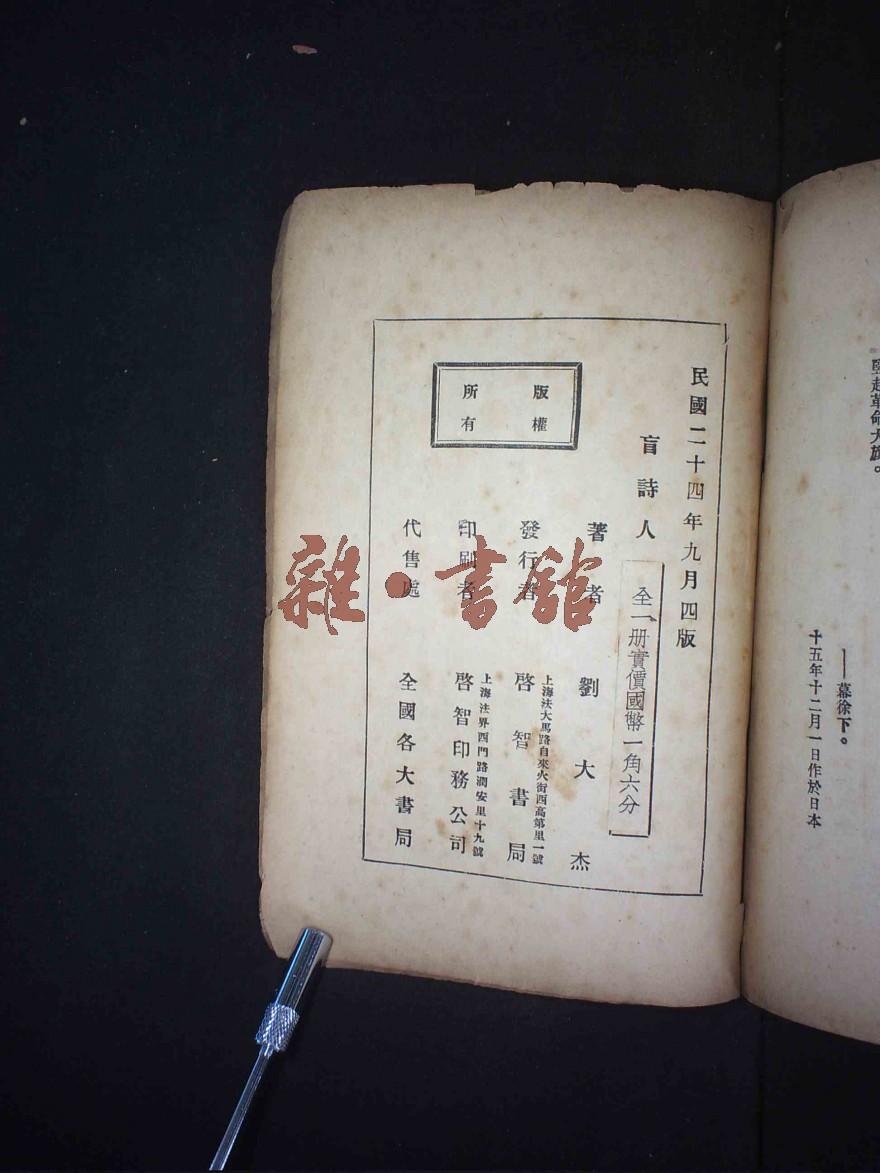 豎起革命大旗。
——幕徐下。
十五年十二月一日作於日本
民國二十四年九月四版
盲詩人
全一册實價國幣一角六分
著者 劉大杰
上海法大馬路自來火街西高第里一號
發行者 啓智書局
上海法界西門路潤安里十九號
印刷者 啓智印務公司
代售處 全國各大書局
版權
所有
雜·書館